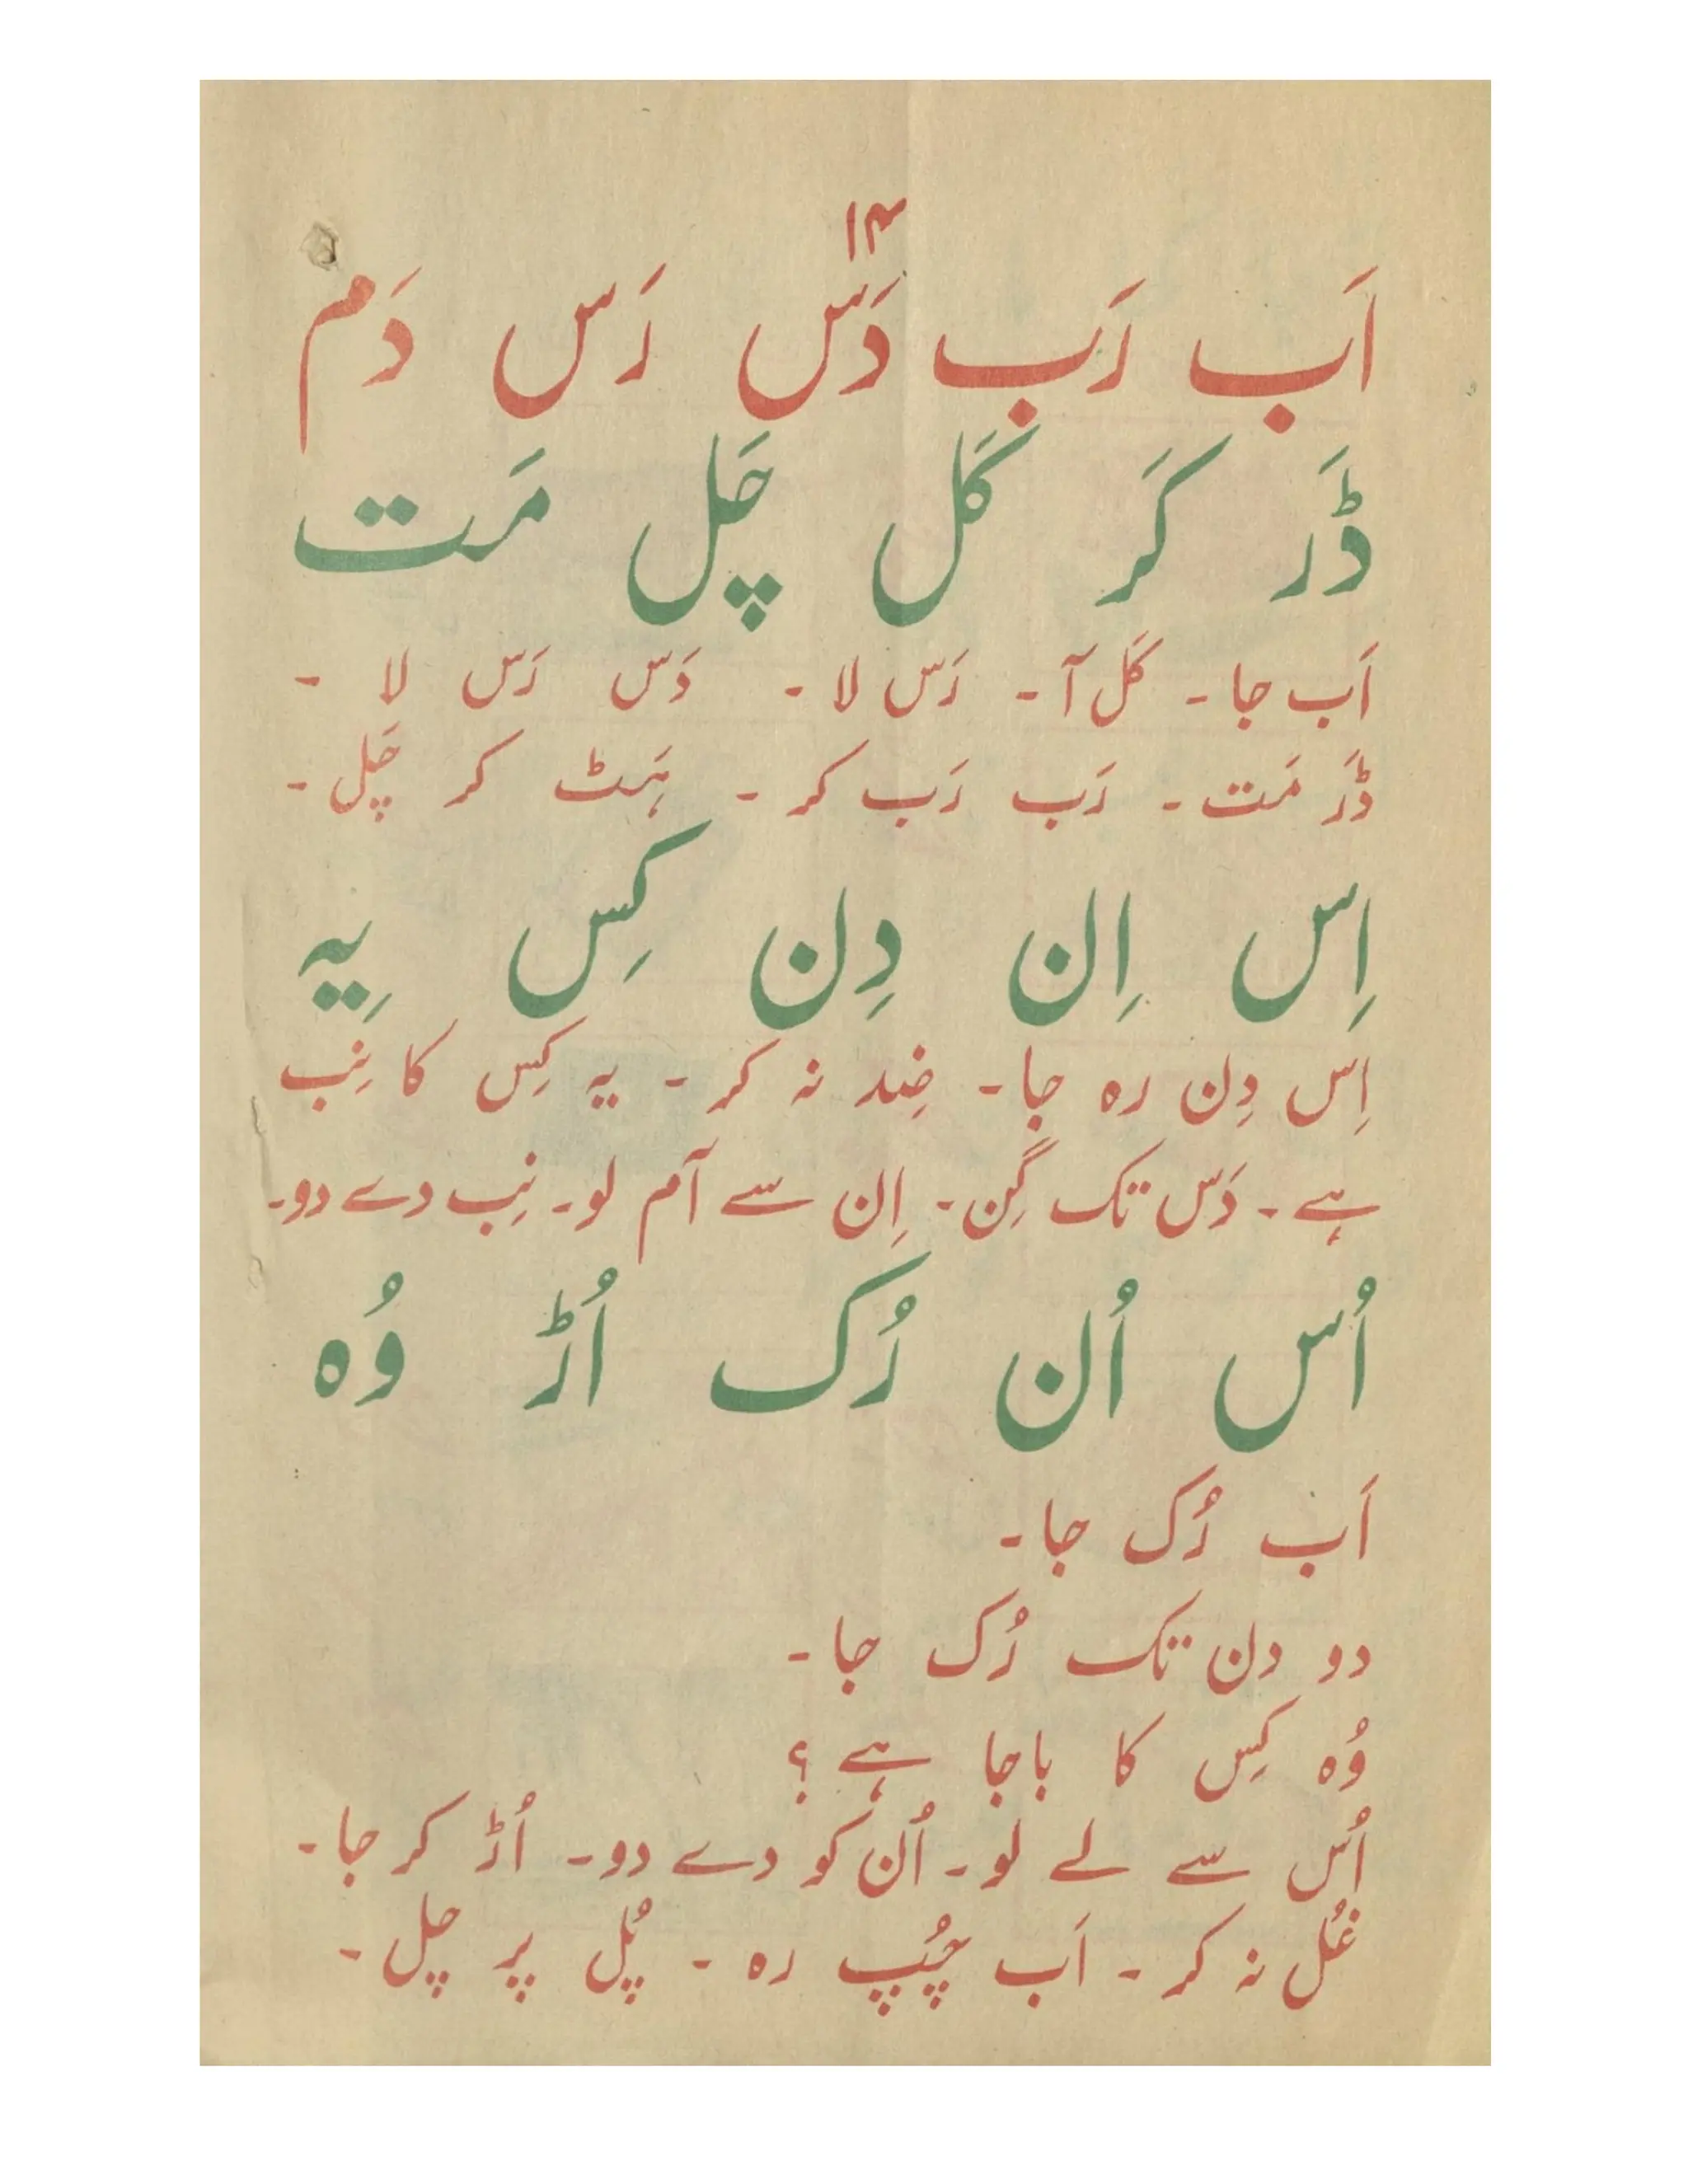 ۱۴
اَب رَب دَس رَس دَم
ڈَر کَر کَل چَل مَت
اَب جا ۔ کَل آ ۔ رَس لا ۔ دَس رَس لا ۔
ڈَر مَت ۔ رَب رَب کر ۔ ہَٹ کر چَل ۔
اِس اِن دِن کِس یِہ
اِس دِن رہ جا ۔ ضِد نہ کر ۔ یہ کِس کا نِب
ہے ۔ دَس تک گِن ۔ اِن سے آم لو ۔ نِب دے دو ۔
اُس اُن رُک اُڑ وُہ
اَب رُک جا ۔
دو دن تک رُک جا ۔
وُہ کِس کا باجا ہے ؟
اُس سے لے لو ۔ اُن کو دے دو ۔ اُڑ کر جا ۔
غُل نہ کر ۔ اَب چُپ رہ ۔ پُل پر چل ۔